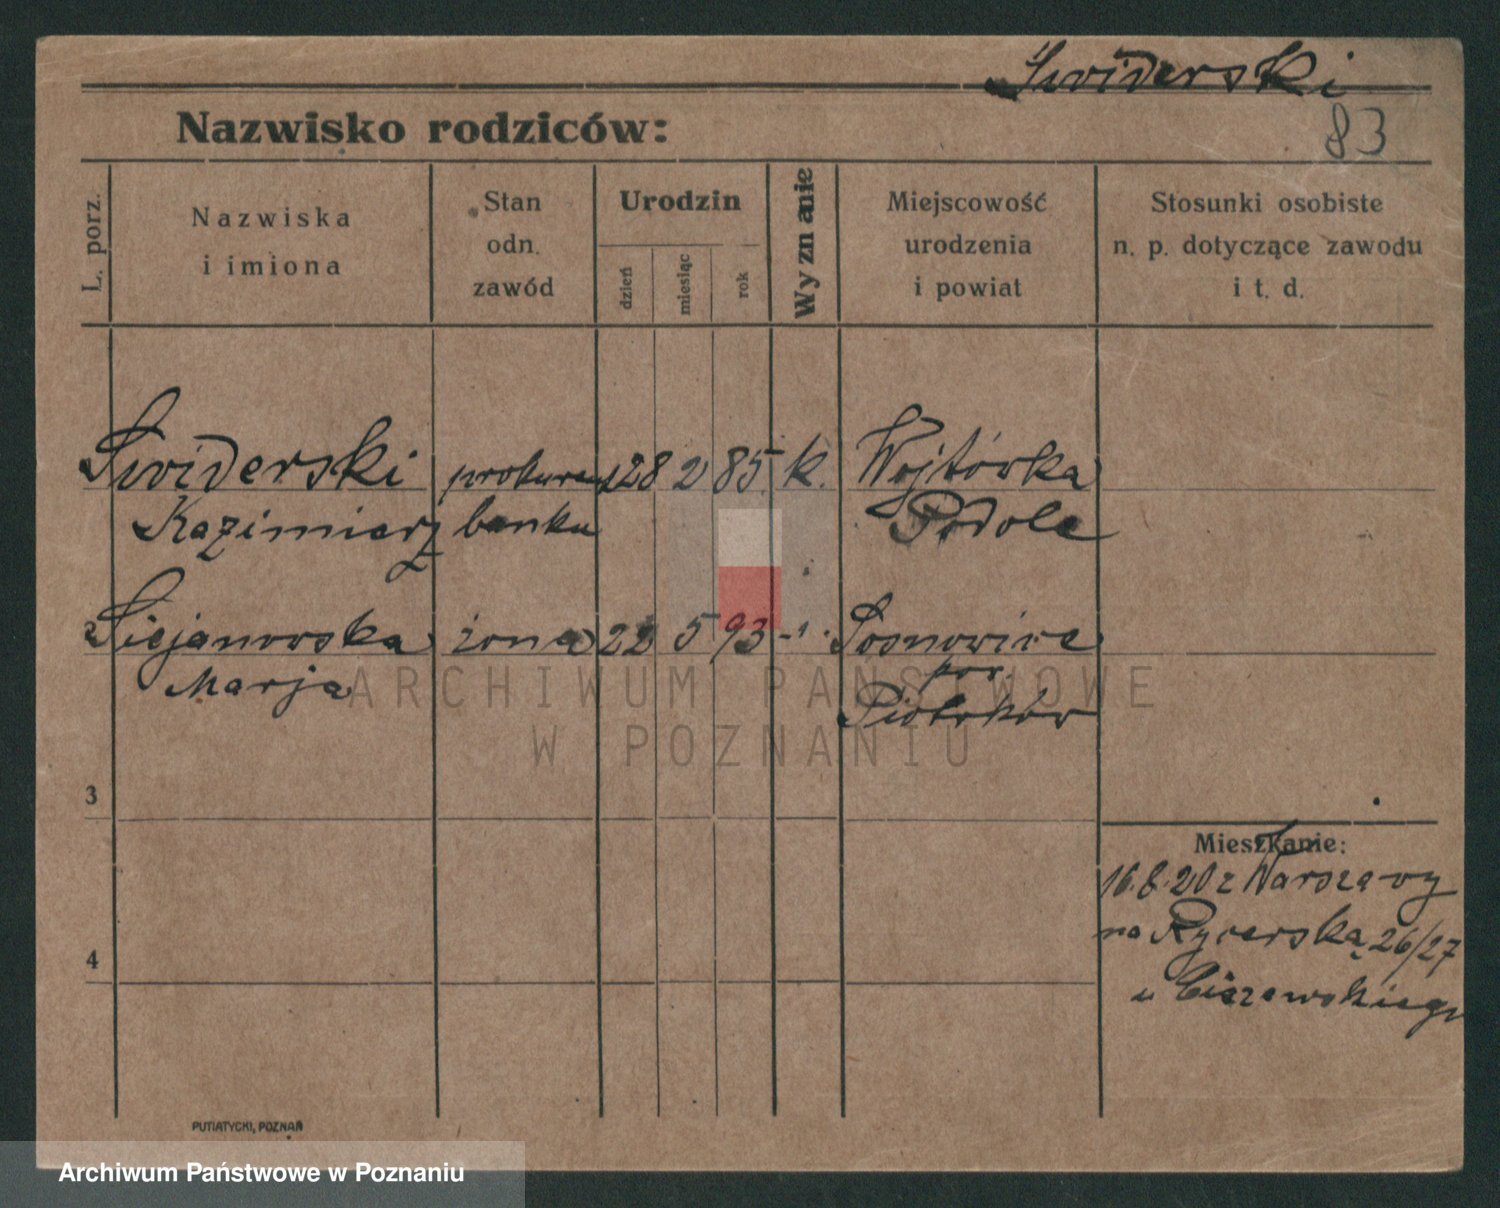 Swiderski
Nazwisko rodziców:
83
L. porz.
Nazwiska
i imiona
Stan
odn.
zawód
Urodzin
dzień
miesiąc
rok
Wyznanie
Miejscowość
urodzenia
i powiat
Stosunki osobiste
n. p. dotyczące zawodu
i t. d.
Swiderski prokurent 28 2 85 k. Wojtówka
Kazimierz banku Podole
2 żona 22 5 93 -"- Sosnowice
Marja pow.
Piotrków
ARCHIWUM PAŃSTWOWE
W POZNANIU
3
Mieszkanie:
16.8.20 z Warszawy
na Rycerską 26/27
4
u Ciszewskiego
PUTIATYCKI, POZNAŃ
Archiwum Państwowe w Poznaniu